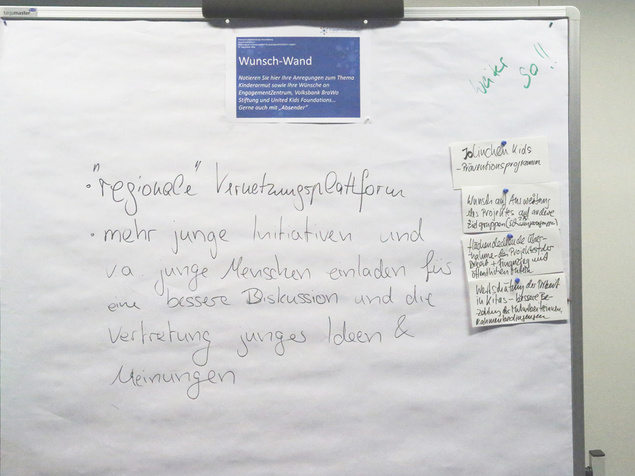 legamaster
Wunsch-Wand
Notieren Sie hier Ihre Anregungen zum Thema
Kinderarmut sowie Ihre Wünsche an
EngagementZentrum, Volksbank BraWo
Stiftung und United Kids Foundations...
Gerne auch mit „Absender"
weiter so!!
• "regionale" Vernetzungsplattform
• mehr junge Initiativen und
v.a. junge Menschen einladen für
eine bessere Diskussion und die
Vertretung junges Ideen &
Meinungen
Jolinchen Kids
- Präventionsprogramm
Wunsch auf Ausweitung
des Projektes auf andere
Zielgruppen
Flächendeckende Über-
nahme des Projektes der
+ Finanzierung
öffentlichen
Wertschätzung der Arbeit
in Kitas - bessere Be-
zahlung der Mitarbeiterinnen
Rahmenbedingungen